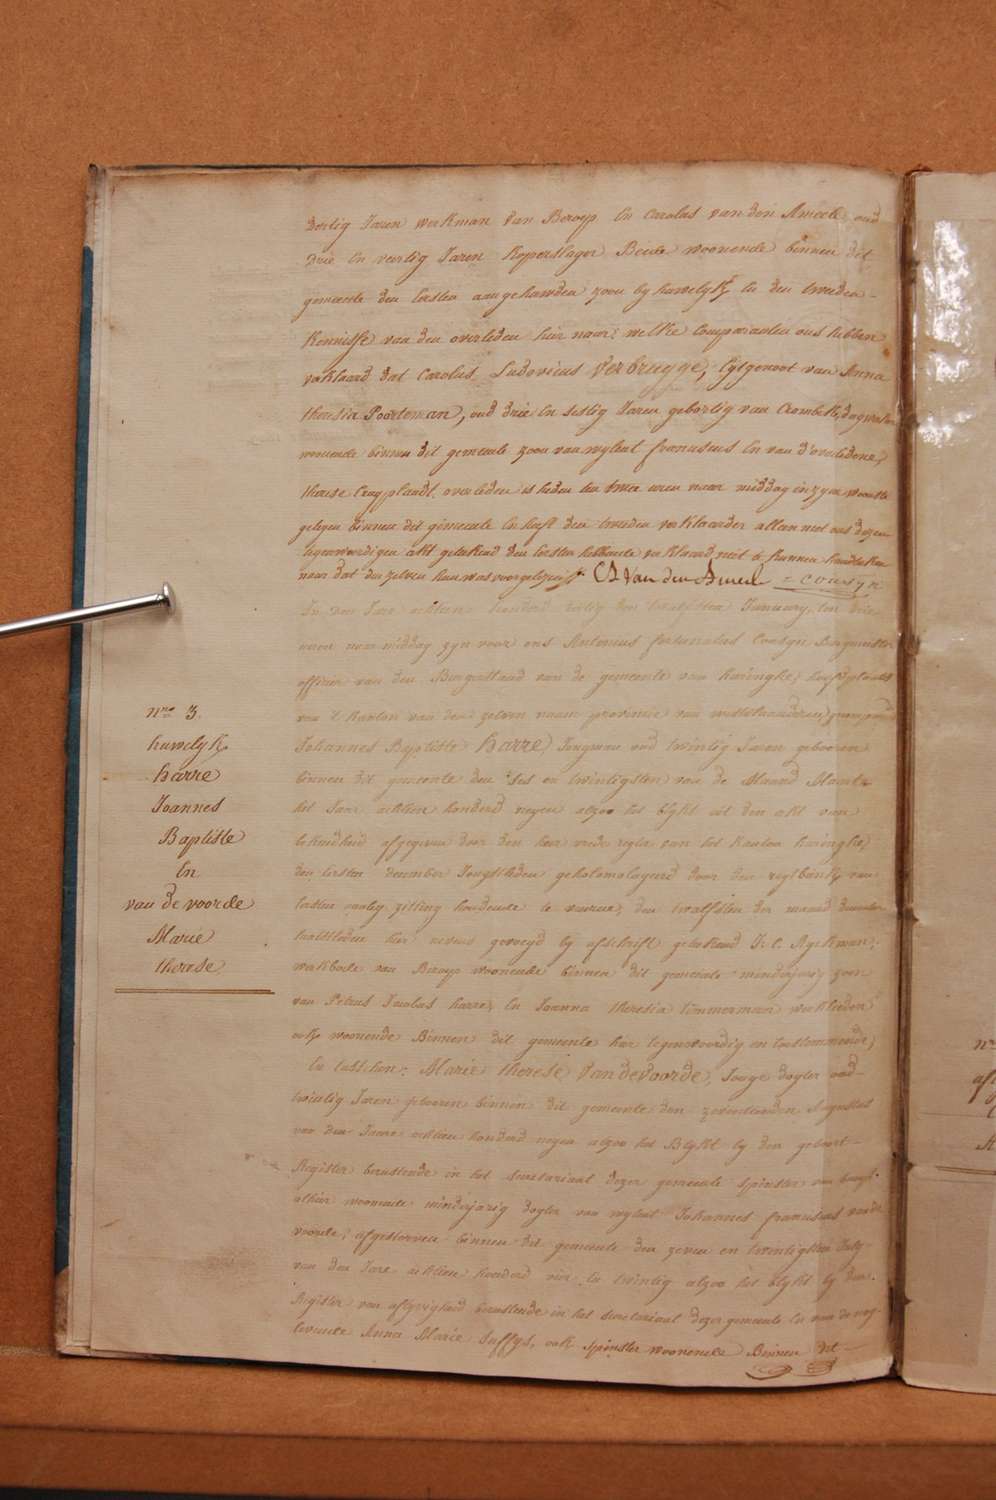 dertig Jaren werkman van Beroep En Carolus van den Ameele oud
drie En veertig Jaren Koperslager Beide woonende binnen dit
gemeente den Eersten aangehuwden zoon by huwelyk En den tweeden
Kennisse van den overleden hier naer: welke Comparanten ons hebben
verklaard dat Carolus Ludovicus Verbrugge, Egtgenoot van Anna
theresia Poorteman, oud drie En sestig Jaren geboortig van Crombeke, dagwerker
woonende binnen dit gemeente zoon van wylent franciscus En van d'overledene,
therese Cruyplandt, overleden is heden ten twee uren naer middag in zyn woonste
gelegen binnen dit gemeente En heeft den tweeden verklaarder alleen met ons dezen
tegenwoordigen akt geteekend den Eersten hebbende verklaard niet te kunnen handteeken
naer dat den zelven hun was voorgelezen. C L Van den Ameele = Cousyn
In den Jare achtien honderd dertig den twalfsten January, ten drie
uren naer middag zyn voor ons Antonius fortunatus Cousyn Burgmeester
officier van den Burgerstand van de gemeente van haringhe, hoofdplaats
van 't kanton van den zelven naam provincie van westvlaanderen, gecompareerd
nro 3.
Johannes Baptiste harre, Jongman oud twintig Jaren gebooren
huwelyk
binnen dit gemeente den ses en twintigsten van de Maand Maart
harre
het Jaer achtien honderd negen alzoo het blykt uit den akt van
Joannes
bekendheid afgegeven door den heer vrede regter van het kanton haringhe,
Baptiste
den Eersten december Jongstleden gehomologeerd door den regtbank van
En
Eersten aanleg zitting houdende te veurne, den twalfsten der maand december
van de voorde
laatstleden hier nevens gevoegd by afschrift geteekend J: C. Ryckman;
Marie
werkbode van Beroep woonende binnen dit gemeente minderjarig zoon
therese
van Petrus Jacobus harre, En Joanna theresia timmerman werklieden
ook woonende Binnen dit gemeente hier tegenwoordig en toestemmende,
En tusschen: Marie therese Vandevoorde, Jonge dogter oud
twintig Jaren gebooren binnen dit gemeente den zeventienden Augustus
van den Jaere achtien honderd negen alzoo het Blykt by den geboort
Register berustende in het secretariaat dezer gemeente spinster van beroep
alhier woonende minderjarig dogter van wylent Johannes franciscus vande
voorde, afgestorven binnen dit gemeente den zeven en twintigsten July
van den Jare achtien honderd vier En twintig alzoo het blykt by den
Register van aflyvigheid berustende in het secretariaat dezer gemeente En van de nog
levende Anna Marie Suffys, ook spinster woonende Binnen dit